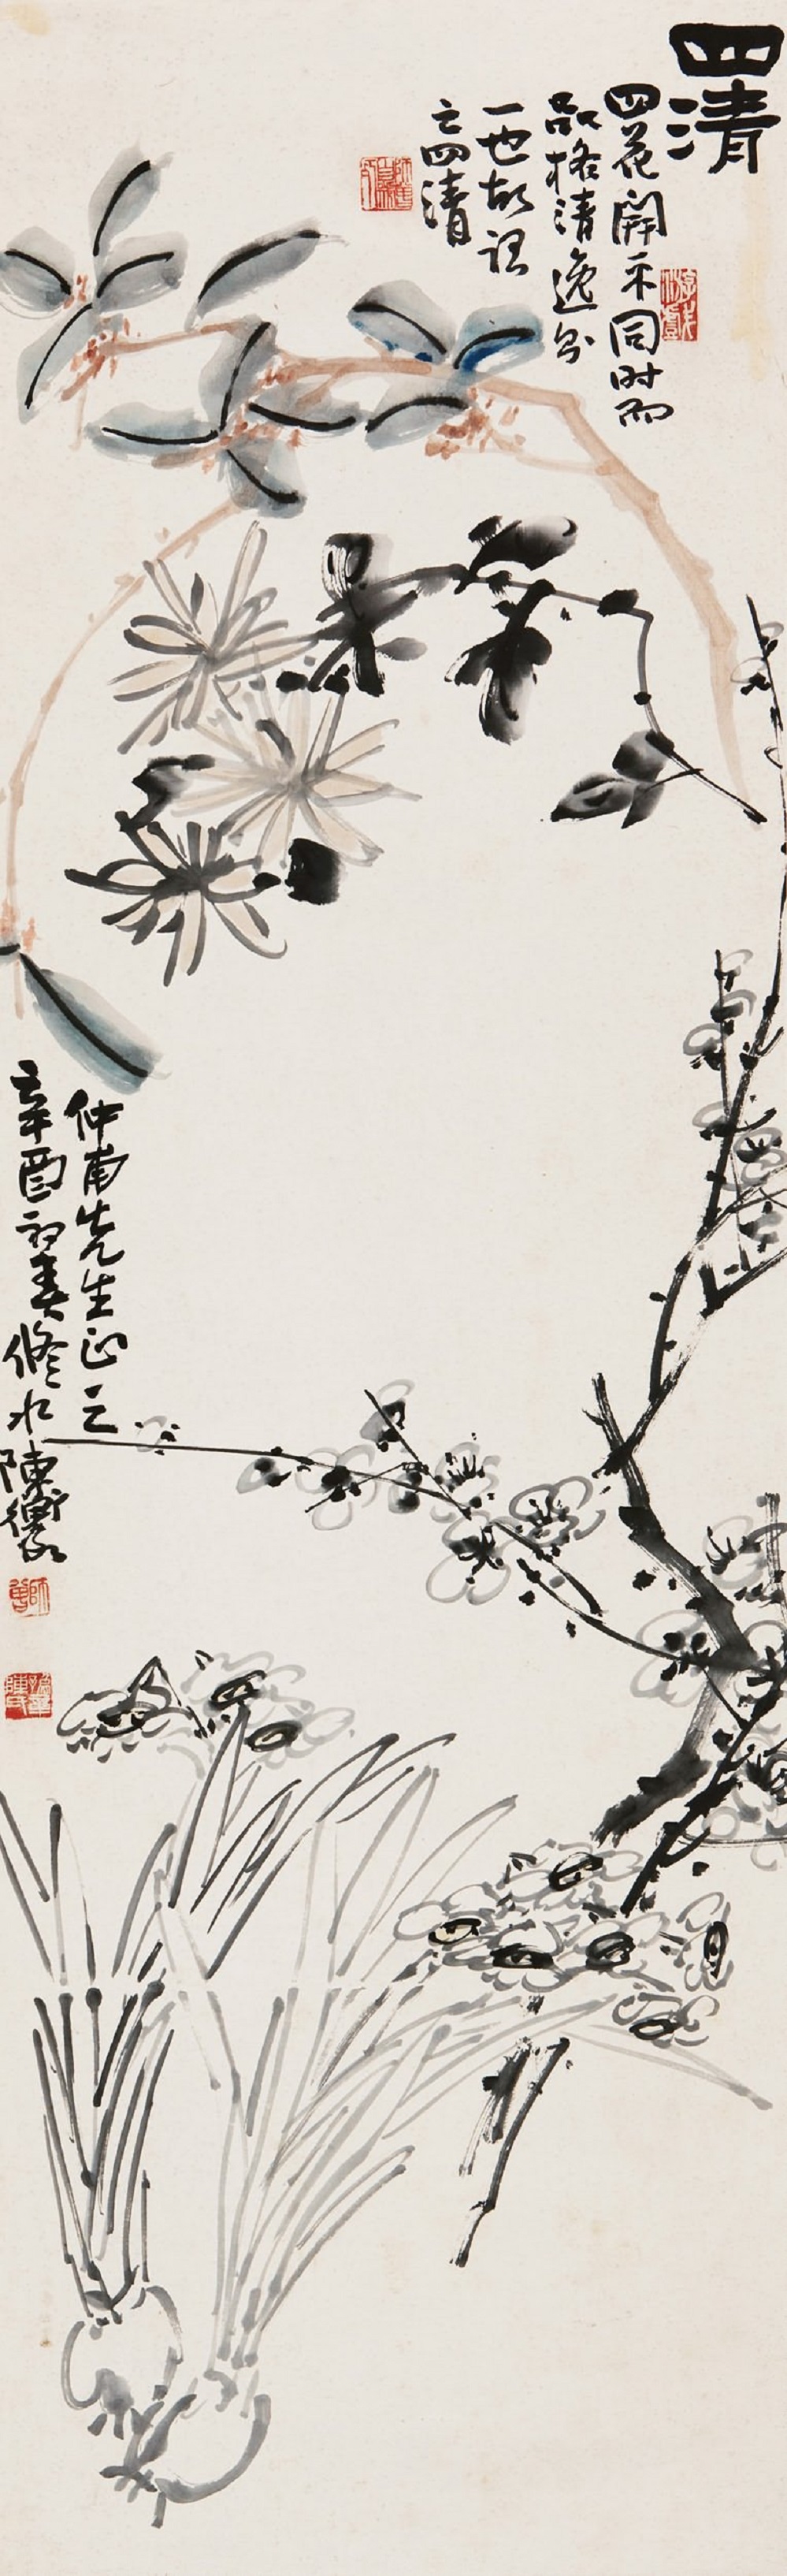 四清
四花開不同時而
品格清逸則
一也故謂
之四清
仲甫先生正之
辛酉初春修水陳衡恪